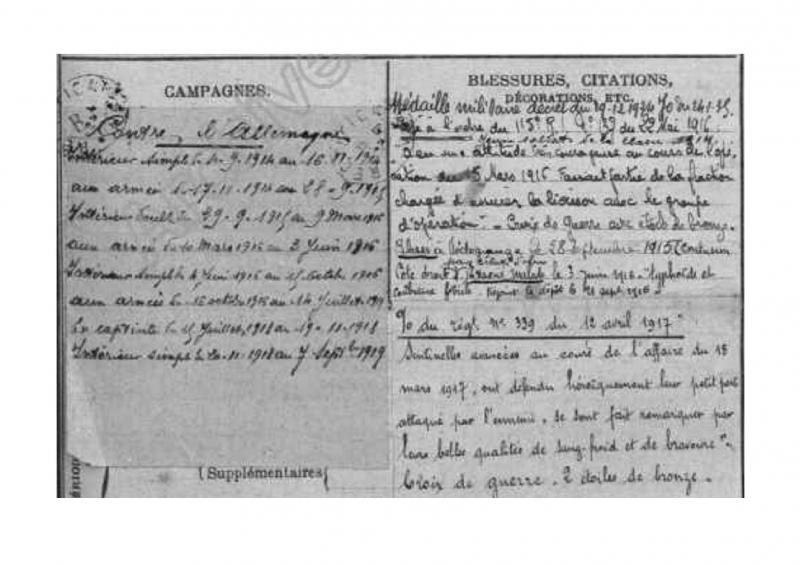 CAMPAGNES.
Contre l'Allemagne
Intérieur simple le 4. 9. 1914 au 16. 11. 1914
aux armées le 17. 11. 1914 au 28. 9. 1915
Intérieur du 29. 9. 1915 au 9 Mars 1916
aux armées le 10 Mars 1916 au 3 Juin 1916
Intérieur simple le 4 Juin 1916 au 15 Octobre 1916
aux armées le 16 octobre 1916 au 14 Juillet 1918
En captivité le 15 Juillet 1918 au 19. 11. 1918
Intérieur simple le 20. 11. 1918 au 7 Septbre 1919
(Supplémentaires)
BLESSURES, CITATIONS,
DÉCORATIONS, ETC.
Médaille militaire décret du 19.12.1934 JO du 24.1.35
Cité à l'ordre du du 22 Mai 1916.
jeune soldat de la classe 14
a eu une attitude très courageuse au cours de l'opé-
ration du 15 Mars 1916 Faisant partie de la fraction
chargée d'assurer la liaison avec le groupe
d'opération". Croix de Guerre avec étoile de bronze.
Blessé à le 28 Septembre 1915 Contusion
par éclat d'obus
Côté droit. malade le 3 Juin 1916 - typhoïde et
Rejoint le dépôt le 21 sept. 1916
O/ du régt N° 339 du 12 avril 1917"
Sentinelles avancées au cours de l'affaire du 18
mars 1917, ont défendu héroïquement leur petit poste
attaqué par l'ennemi. Se sont fait remarquer par
leurs belles qualités de sang-froid et de bravoure".
Croix de guerre. 2 étoiles de bronze.
PÉRIOD